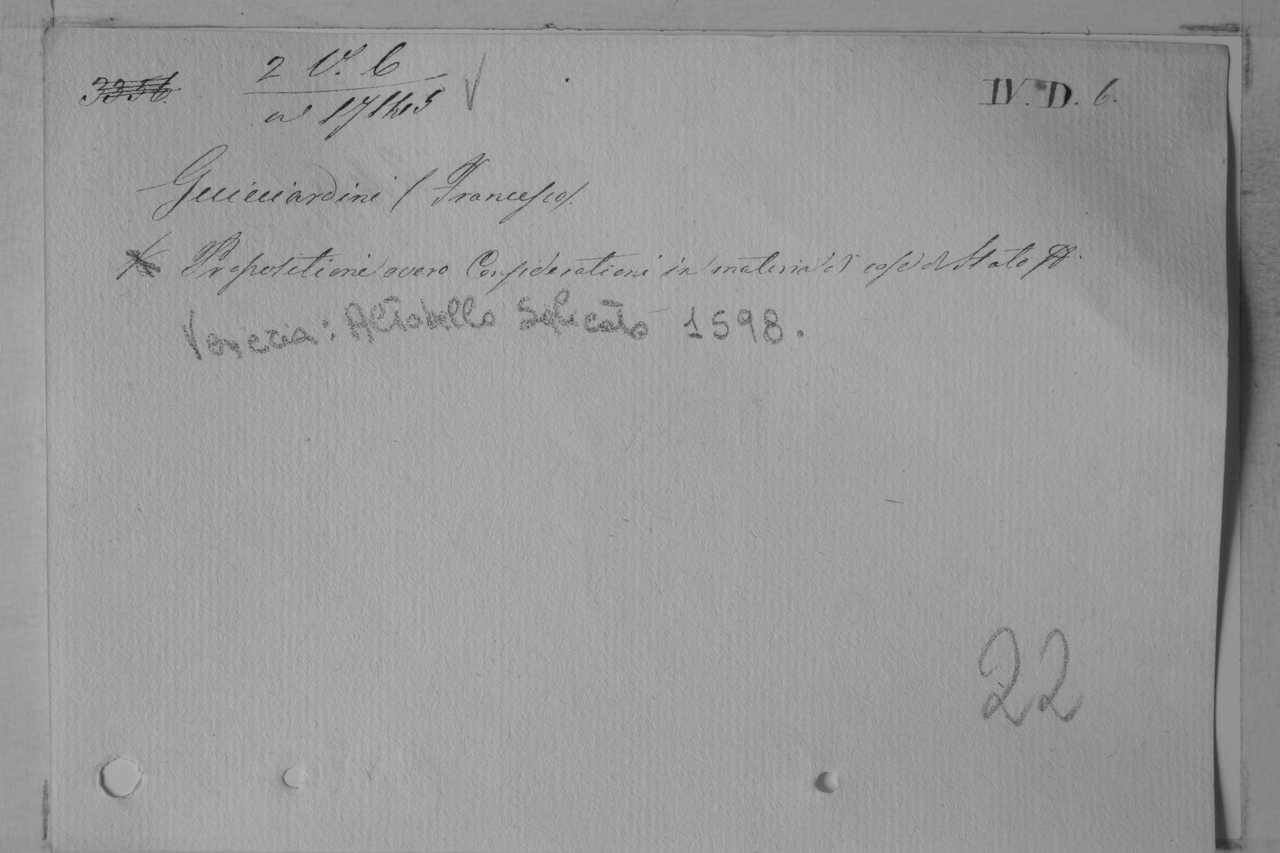 3356. 2 V. 6 IV. D. 6.
ad 17145
Guicciardini (Francesco).
Propositioni overo Considerationi in materia di cose di Stato
Venezia: Altobello Salicato 1598.
22